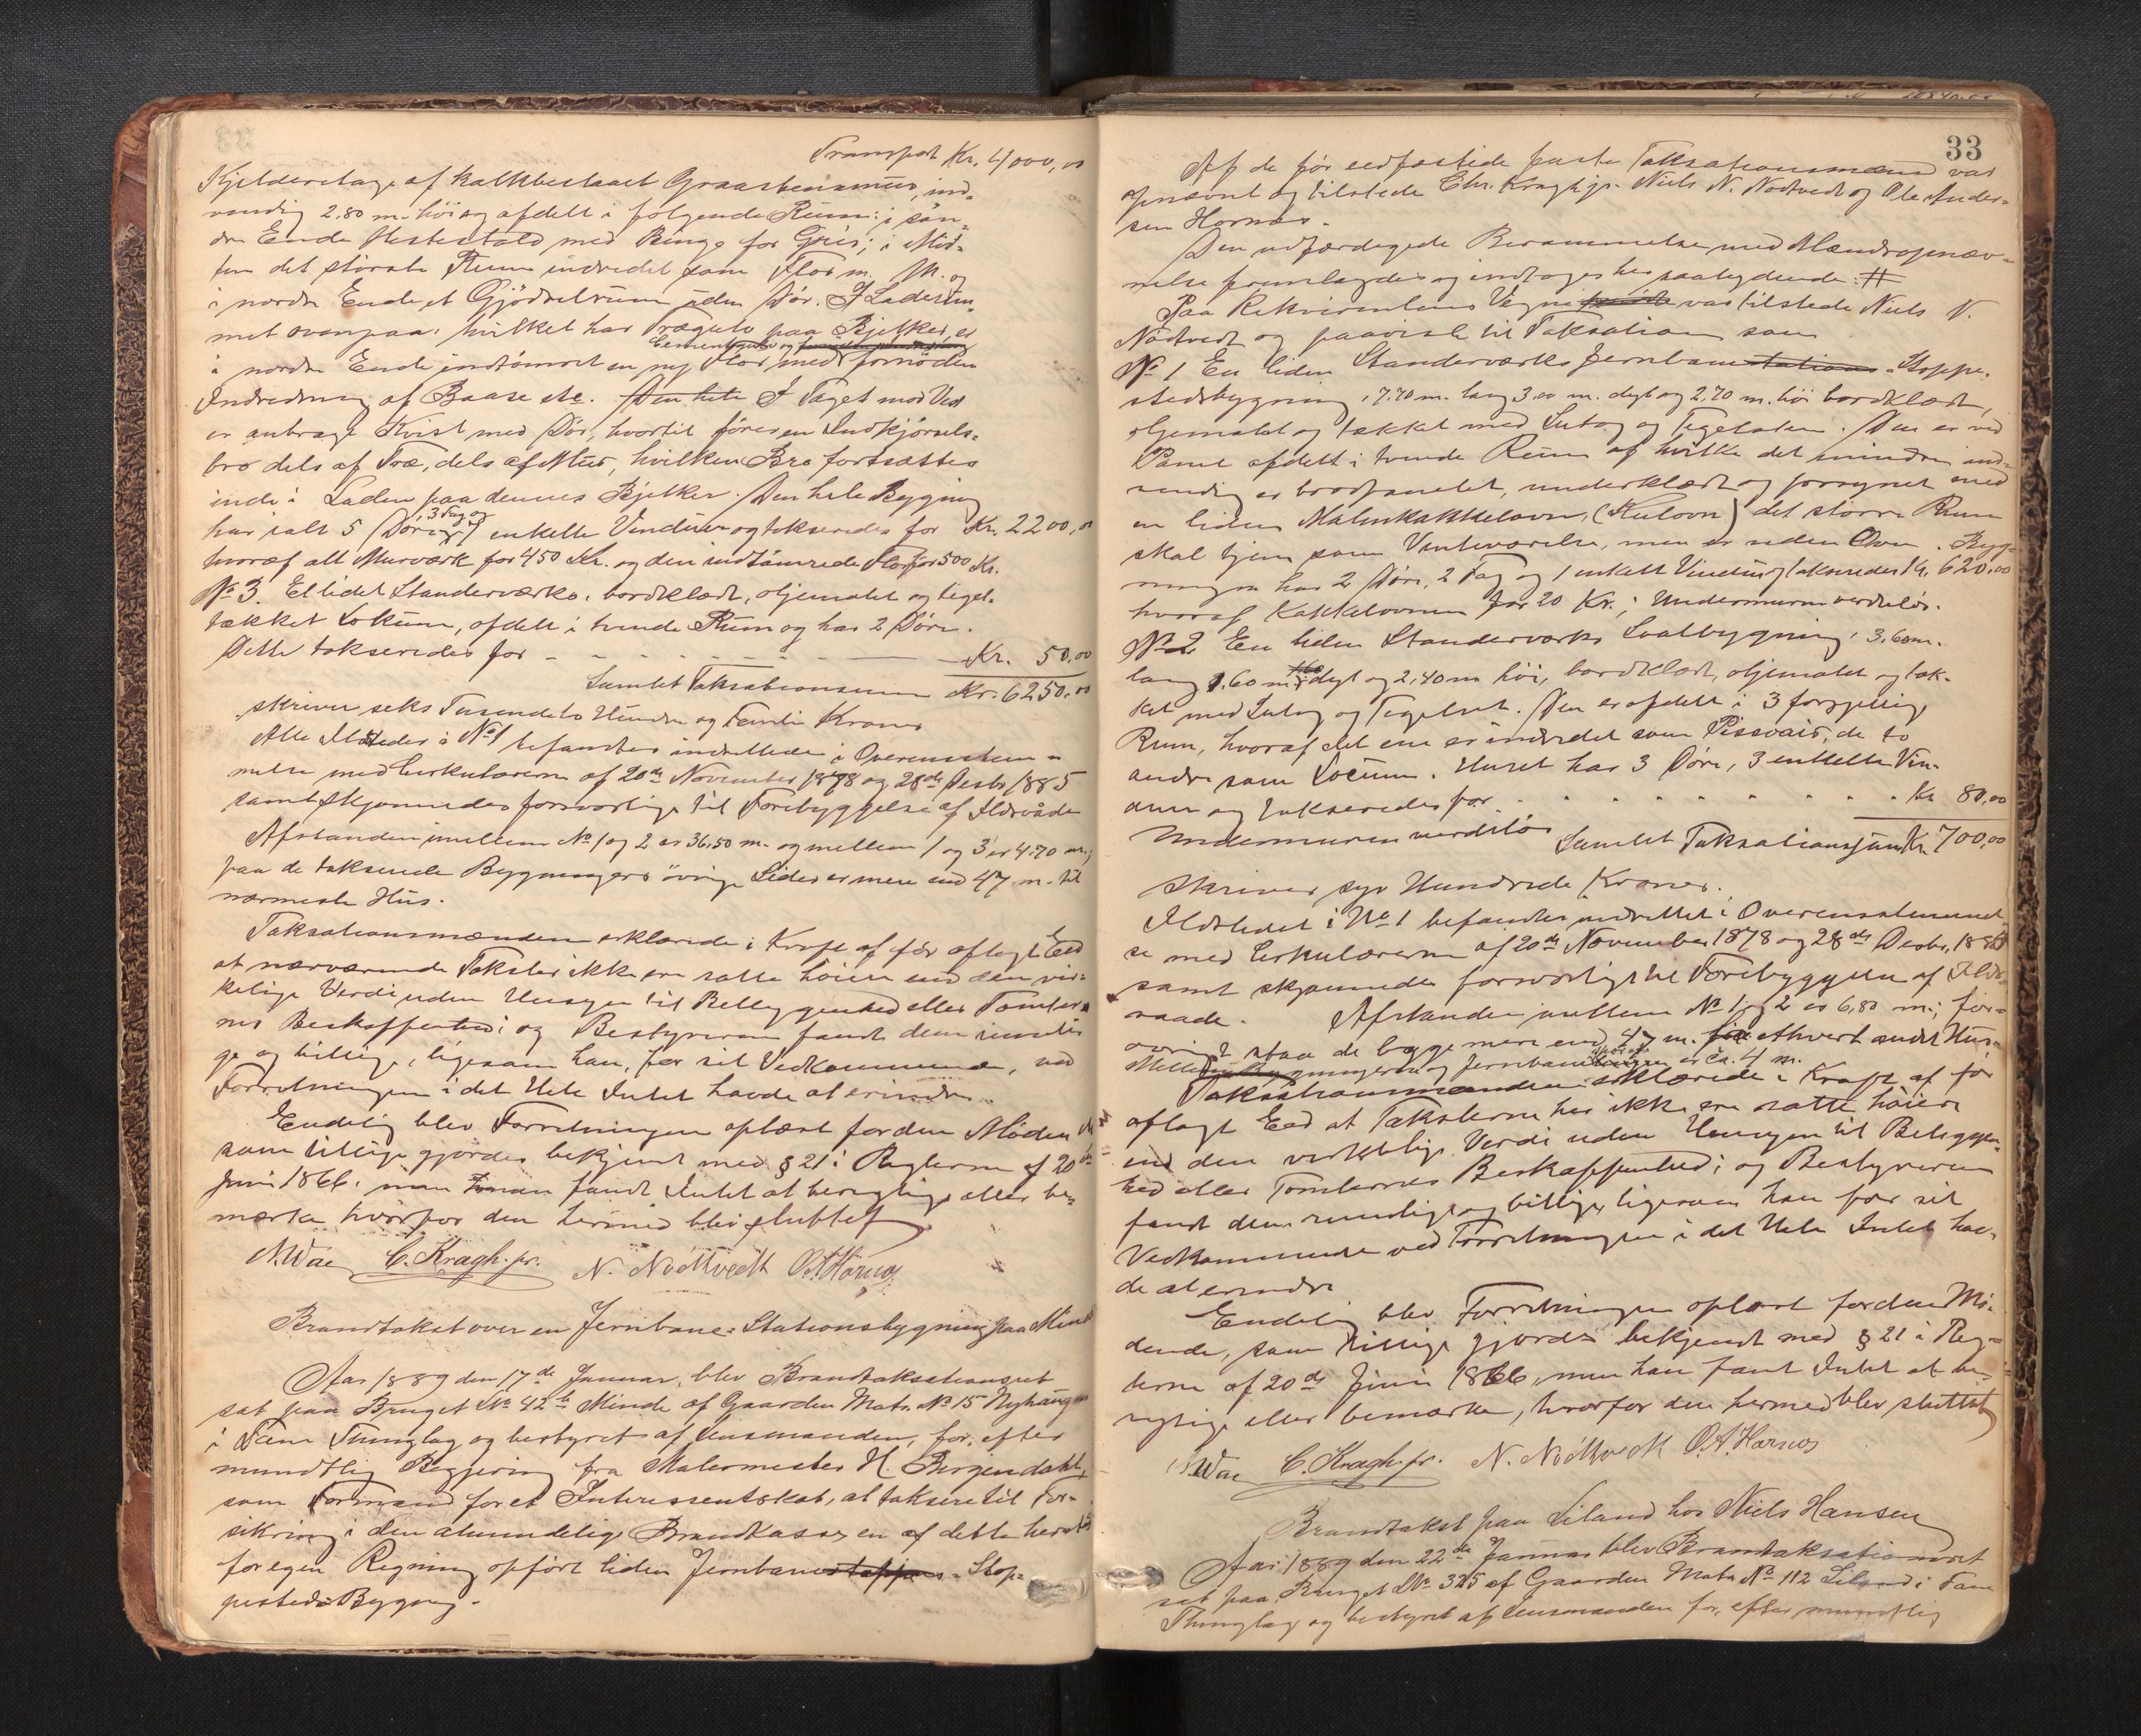 Transport Kr. 4000,00
Kjelderetage af kalkbestaaet Graastensmur, ind-
vendig 2,80 m. høi og afdelt i følgende Rum: i søn-
dre Ende Hestestald med Binge for Gris; i Mid-
ten det største Rum indredet som Flor m. M. og
i nordre Ende et Gjødselrum uden Dør. I Laderum-
met ovenpaa, hvilket har Trægulv paa Bjelker, er
Cementgulv og
i nordre Ende indtømret en ny Flor med fornøden
Indredning af Baase etc. Den hele I Taget mod Vest
er anbragt Kvist med Dør, hvortil fører en Indkjørsels-
bro dels af Træ, dels af Mur, hvilken Bro fortsættes
inde i Laden paa dennes Bjelker. Den hele Bygning
3 Fag og
har ialt 5 Døre, enkelte Vinduer og takseredes for Kr. 2200,00
hvoraf alt Murværk for 450 Kr. og den indtømrede Flor for 500 Kr.
No 3. Et lidet Standerværks, bordklædt, oljemalet og tegl-
tækket Lokum, afdelt i tvende Rum og har 2 Døre.
Dette takseredes for - - - - - Kr. 50,00
Samlet Taksationssum Kr. 6250,00
skriver seks Tusende to Hundre og Femti Kroner
Alle Ildsteder i No 1 befandtes indrettede i Overensstem-
melse med Cirkulærerne af 20de November 1878 og 28de Desbr. 1885
samt skjønnedes forsvarlige til Forebyggelse af Ildsvåde
Afstanden imellem No 1 og 2 er 36,50 m. og mellem 1 og 3 er 4.70 m.;
paa de takserede Bygningers øvrige Sider er mere end 47 m. til
nærmeste Hus.
Taksationsmændene erklærede i Kraft af før aflagt Eed
at nærværende Takster ikke ere satte høiere end den vir-
kelige Verdi uden Hensyn til Beliggenhed eller Tomter-
nes Beskaffenhed; og Bestyreren fandt dem rimeli-
ge og billige, ligesom han, for sit Vedkommende, ved
Forretningen i det Hele Intet havde at erindre.
Endelig blev Forretningen oplæst for den Mødende
som tillige gjordes bekjendt med § 21 i Reglerne af 20de
Juni 1866, men han fandt Intet at berigtige eller be-
mærke hvorfor den hermed blev sluttet.
N. Wae C. Kragh. jr. N. Nøttvedt O. A. Hornes
Brandtakst over en Jernbane-Stationsbygning paa Minde
Aar 1889 den 17de Januar, blev Brandtaksationsret
sat paa Bruget No 42 b Minde af Gaarden Matr. No 15 Nyhaugen
i Fane Thinglag og bestyret af Lensmanden, for, efter
mundtlig Begjering fra Malermester H. Bergendahl,
som Formand for et Interessentskab, at taksere til For-
sikring i den almindelige Brandkasse, en af dette herst.
for egen Regning opført liden Jernbane-Stop-
pesteds Bygning.
33
Af de før eedfæstede faste Taksationsmænd var
opnævnt og tilstede Chr. Kragh jr. Niels N. Nøttvedt og Ole Ander-
sen Hornes.
Den udfærdigede Berammelse med Mændsopnæv-
nelse fremlagdes og indtages her saalydende: #
Paa Rekvirentens Vegne var tilstede Niels N.
Nøttvedt og paaviste til Taksation som
No 1 En liden Standerværks Jernbanestations-Stoppe-
stedsbygning, 7.70 m. lang 3.00 m. dyb og 2.70 m. høi bordklædt,
oljemalet og tækket med Sutag og Teglsten. Den er ved
Panel afdelt i tvende Rum af hvilke det mindre ind-
vendig er bordpanelet, underklædt og forsynet med
en liden Malmkakkelovn, (Kulovn) det større Rum
skal tjene som Venteværelse, men er uden Ovn. Byg-
ningen har 2 Døre, 2 Fag og 1 enkelt Vindu og takseredes Kr. 620,00
hvoraf Kakkelovnen for 20 Kr.; Undermuren verdiløs.
No 2 En liden Standerværks Svalbygning, 3.60 m.
lang 1.60 m. dyb og 2,40 m høi, bordklædt, oljemalet og tæk-
ket med Sutag og Teglst. Den er afdelt i 3 forskjellige
Rum, hvoraf det ene er indredet som Pissoair, de to
andre som Locum. Huset har 3 Døre, 3 enkelte Vin-
duer og takseredes for . . . . . Kr 80,00
Undermuren værdiløs Samlet Taksationssum Kr. 700,00
skriver syv Hundrede Kroner.
Ildstedet i No 1 befandtes indrettet i Overensstemmel-
se med Cirkulærerne af 20de November 1878 og 28de Desbr. 1885
samt skjønnedes forsvarligt til Forebyggelse af Ilds-
vaade. Afstanden mellem No 1 og 2 er 6,80 m.; for-
øvrigt staa de begge mere end 47 m. fra ethvert andet Hus.
Mellem Bygningerne og Jernbane er ca. 4 m.
Taksationsmændene erklærede i Kraft af før
aflagt Eed at Taksterne her ikke ere satte høiere
end den virkelige Verdi uden Hensyn til Beliggen-
hed eller Tomternes Beskaffenhed; og Bestyreren
fandt dem rimelige og billige, ligesom han for sit
Vedkommende ved Forretningen i det Hele Intet hav-
de at erindre
Endelig blev Forretningen oplæst for den Mø-
dende, som tillige gjordes bekjendt med § 21 i Reg-
lerne af 20de Juni 1866, men han fant Intet at be-
rigtige eller bemærke, hvorfor den hermed blev sluttet
N. Wae C. Kragh. jr. N. Nøttvedt O. A. Hornes
Brandtakst paa Liland hos Niels Hansen
Aar 1889 den 22de Januar blev Brandtaksationsret
sat paa Bruget No 315 af Gaarden Matr. No 112 Liland i Fane
Thinglag og bestyret af Lensmanden for, efter mundtlig